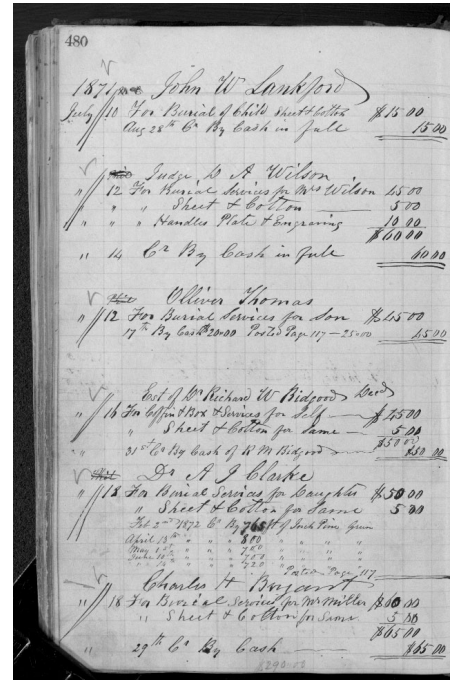 480
1871 John W Lankford
July 10 For Burial of Child Sheet & Cotton $15 00
Aug 28th Cr By Cash in full 15 00
Judge D A Wilson
" 12 For Burial Services for Mrs Wilson 45 00
" " Sheet & Cotton 5 00
" Handles Plate & Engraving 10 00
$60 00
" 14 Cr By Cash in full 60 00
Olliver Thomas
" 12 For Burial Services for Son $45 00
17th By Cash $20=00 Posted Page 117 - 25=00 45 00
Est of Richard W Bidgood Decd
" 16 For Coffin & Box & Services for Self $45 00
" Sheet & Cotton for Same 5 00
$50 00
31st Cr By Cash of R M Bidgood $50 00
Dr A J Clarke
" 18 For Burial Services for Daughter $50 00
" Sheet & Cotton for Same 5 00
Feb 2nd 1872 Cr By 765 ft of Inch Pine
April 13th " " " 800 " " " "
May 1st " " " 700 " " "
June " " " 700 " " "
" " " " 720 " "
Posted Page 117
Charles H Bryant
" 18 For Burial Services for Mr Miller $60 00
" Sheet & Cotton for Same 5 00
$65 00
" 29th Cr By Cash $65 00
$290=00